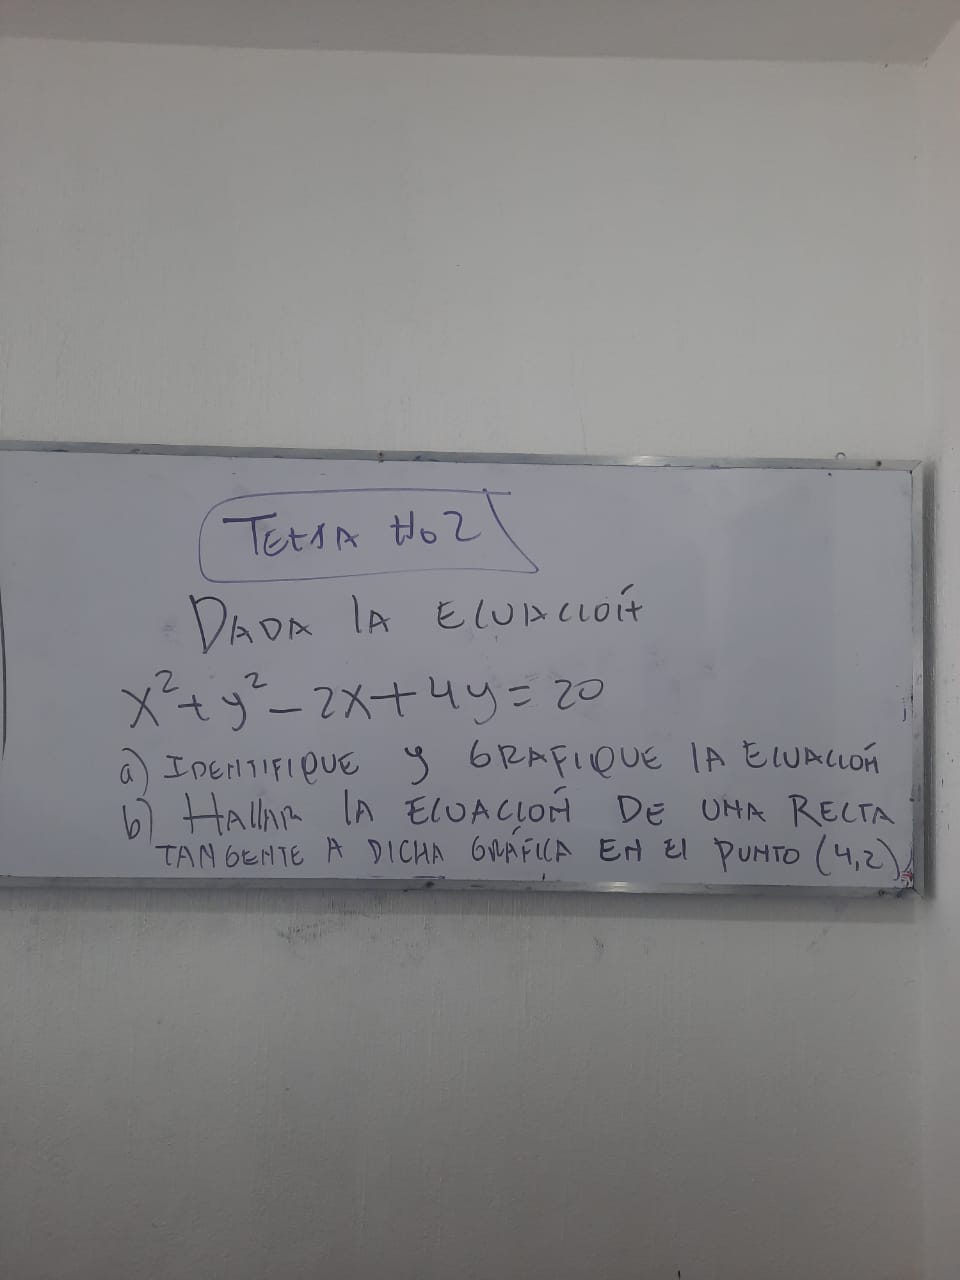 TETSA No 2
DADA LA ECUACIÓN
x² + y² - 2x + 4y = 20
a) IDENTIFIQUE y GRAFIQUE LA ECUACIÓN
b) HALLAR LA ECUACIÓN DE UNA RECTA
TANGENTE A DICHA GRÁFICA EN El PUNTO (4,2)